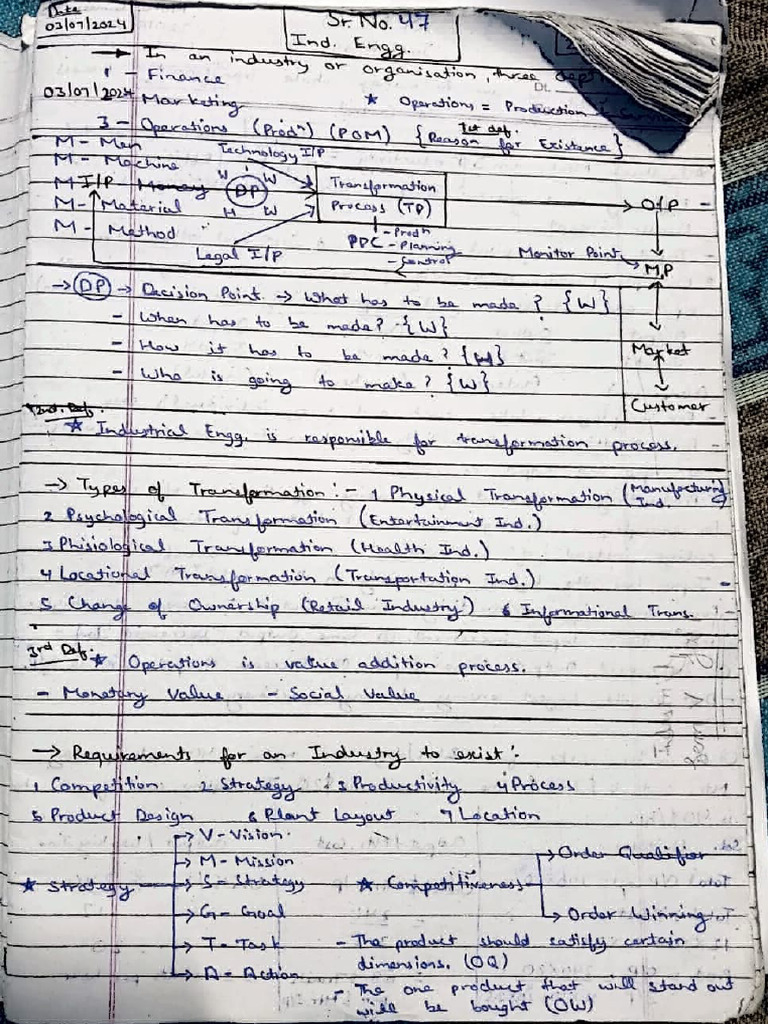 Date
03/07/2024
Sr. No. 47
Ind. Engg.
→ In an industry or organisation, three dept
1 - Finance
03/07/2024
2 - Marketing
★ Operations = Production
3 - Operations (Prodⁿ) (POM) {Reason for Existence}
1st def.
M - Men
M - Machine
M - Money
M - Material
M - Method
I/P
Technology I/P
W W W
DP
H W
Legal I/P
Transformation
Process (TP)
PPC
- Prodⁿ
- Planning
- Control
O/P
Monitor Point
M.P
Market
Customer
→ DP → Decision Point → What has to be made? {W}
- When has to be made? {W}
- How it has to be made? {H}
- Who is going to make? {W}
2nd. Def.
★ Industrial Engg. is responsible for transformation process.
→ Types of Transformation :- 1 Physical Transformation (Manufacturing Ind.)
2 Psychological Transformation (Entertainment Ind.)
3 Phisiological Transformation (Health Ind.)
4 Locational Transformation (Transportation Ind.)
5 Change of Ownership (Retail Industry) 6 Informational Trans.
3rd Def. ★ Operations is value addition process.
- Monetary Value - Social Value
→ Requirements for an Industry to exist :
1 Competition 2 Strategy 3 Productivity 4 Process
5 Product Design 6 Plant Layout 7 Location
★ Strategy
→ V - Vision
→ M - Mission
→ S - Strategy
→ G - Goal
→ T - Task
→ A - Action
★ Competitiveness
→ Order Qualifier
→ Order Winning
- The product should satisfy certain
dimensions. (OQ)
- The one product that will stand out
will be bought (OW)